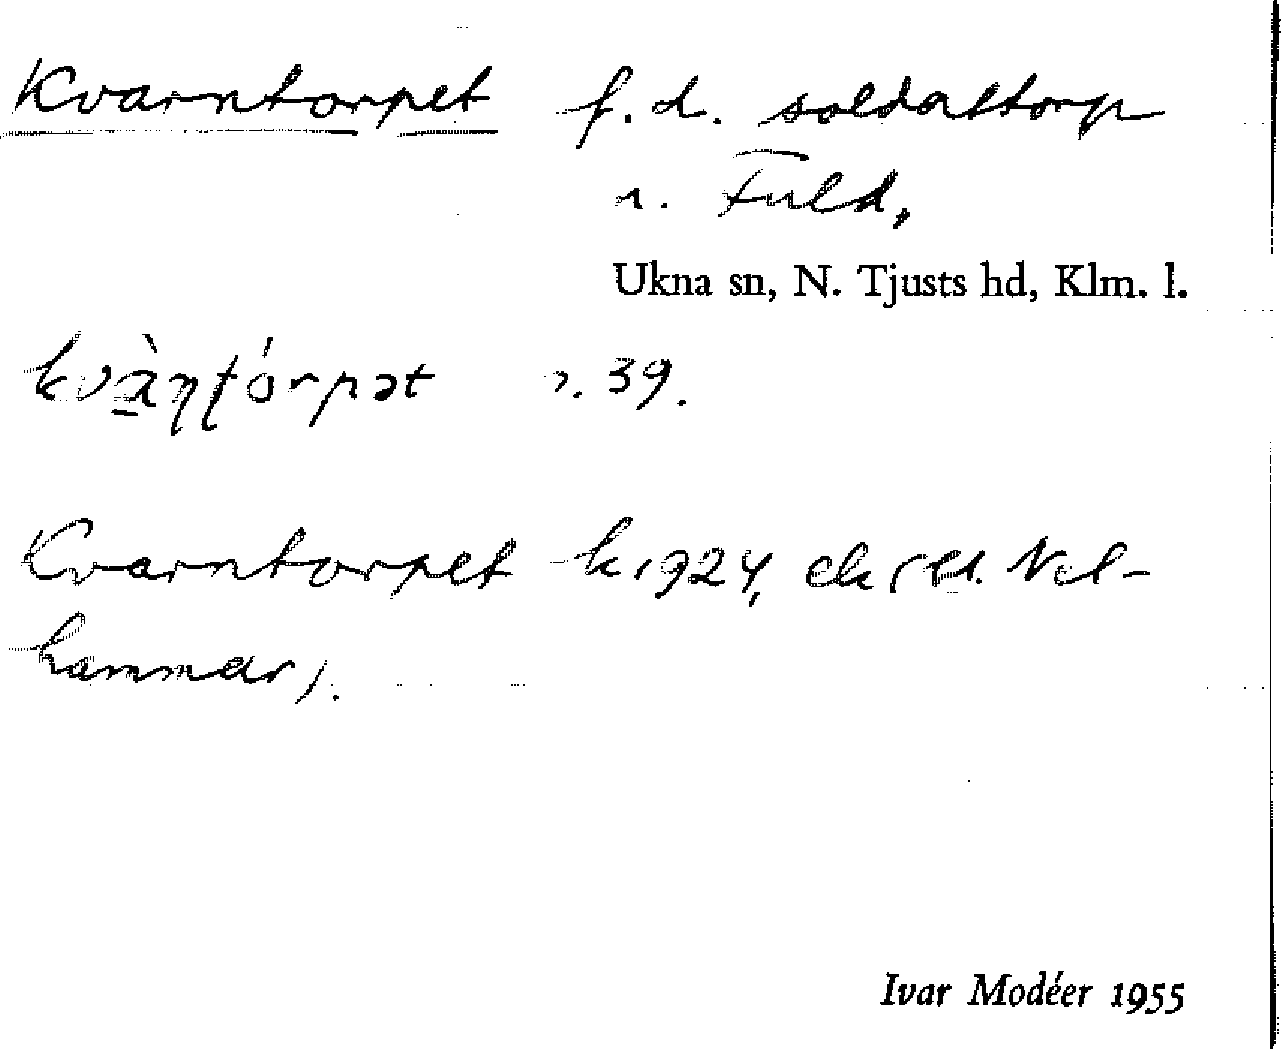 Kvarntorpet f.d. soldattorp
u. Fuld,
Ukna sn, N. Tjusts hd, Klm. l.
kvàɳʈórpət s. 39.
Kvarntorpet k 1924, ek (bl.
hammar).
Ivar Modéer 1955